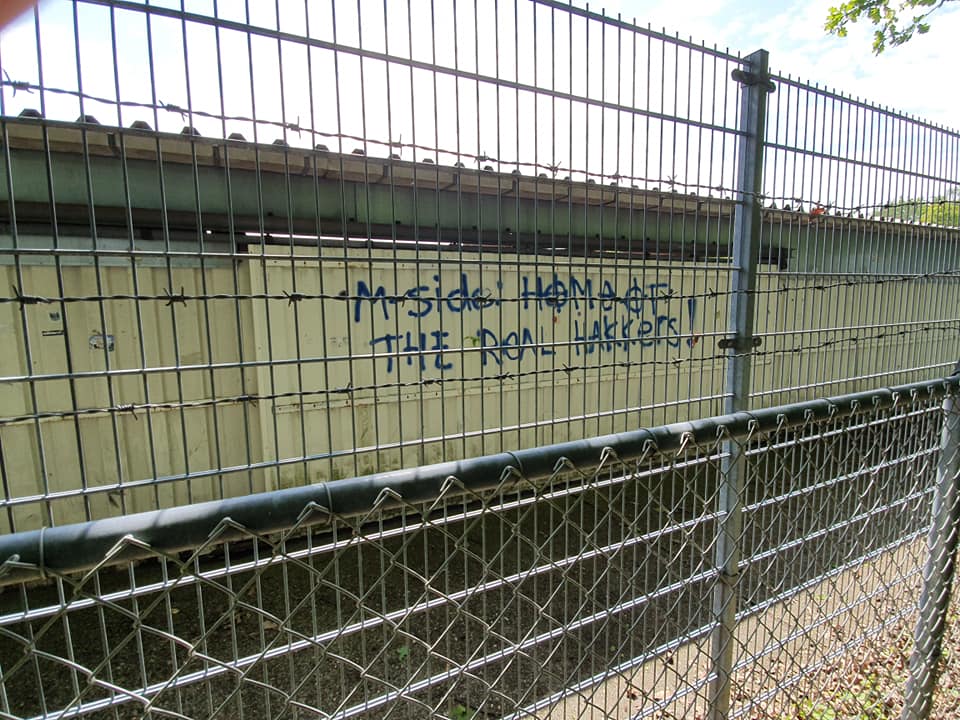 M-side: HOMAOT
THE REAL HAKKers!